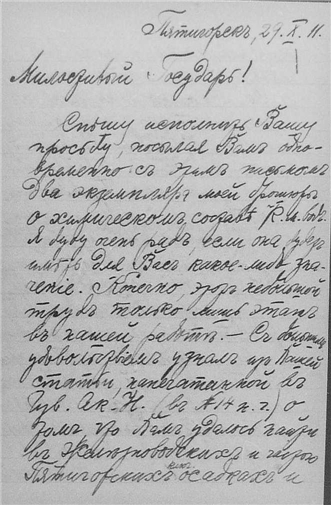 Пятигорскъ, 29. X. 11.
Милостивый Государь!
Спѣшу исполнить Вашу
просьбу, посылая Вамъ одно-
временно съ этимъ письмомъ
два экземпляра моей брошюры
о химическомъ составѣ
Я буду очень радъ, если она будетъ
имѣть для Васъ какое-либо зна-
ченіе. Конечно этотъ небольшой
трудъ только лишь этапъ
въ нашей работѣ. – Съ большимъ
удовольствіемъ узналъ изъ Вашей
статьи напечатанной въ
Изв. Ак. Н. (въ № 14 н. г.) о
томъ что Вамъ удалось найти
въ Желѣзноводскихъ и
Пятигорскихъ осадкахъ и